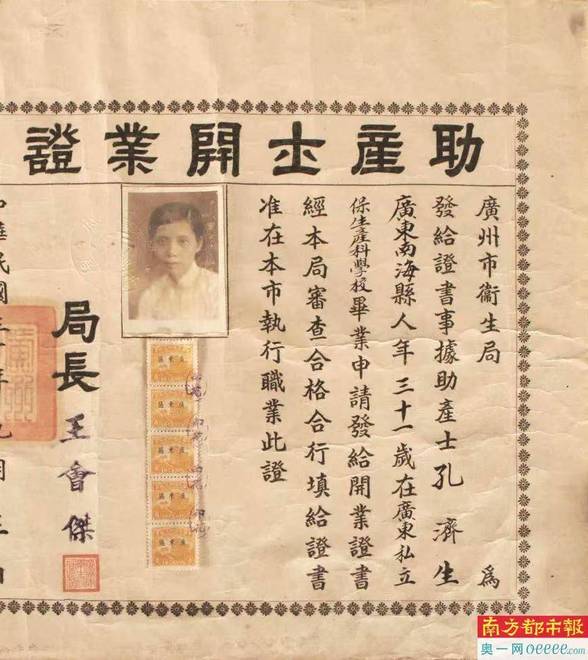 助產士開業證
廣州市衞生局為
發給證書事據助產士孔濟生
廣東南海縣人年三十一歲在廣東私立
保生產科學校畢業申請發給開業證書
經本局審查合格合行填給證書
准在本市執行職業此證
局長王會傑
華民國
南方都市報
奥一网oeeee.com